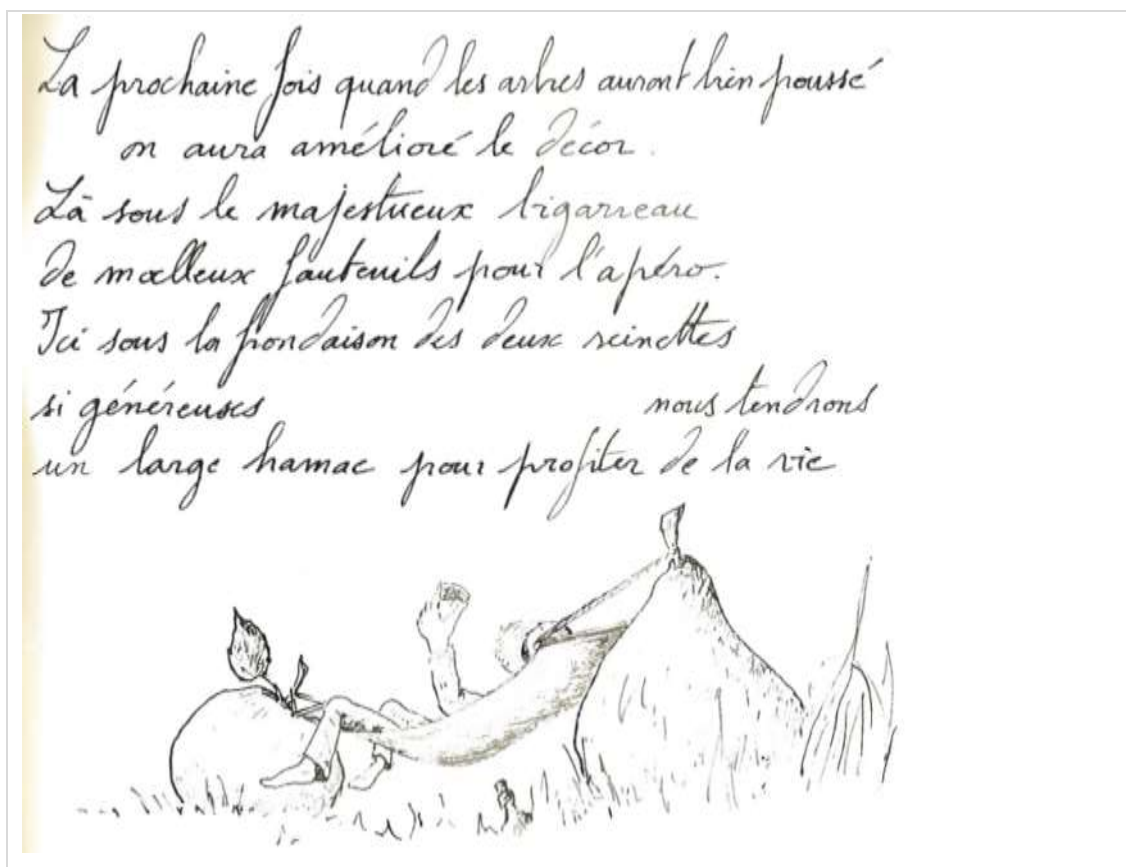 La prochaine fois quand les arbres auront bien poussé
on aura amélioré le décor.
Là sous le majestueux bigarreau
de mœlleux fauteuils pour l'apéro.
Ici sous la frondaison des deux reinettes
si généreuses nous tendrons
un large hamac pour profiter de la vie